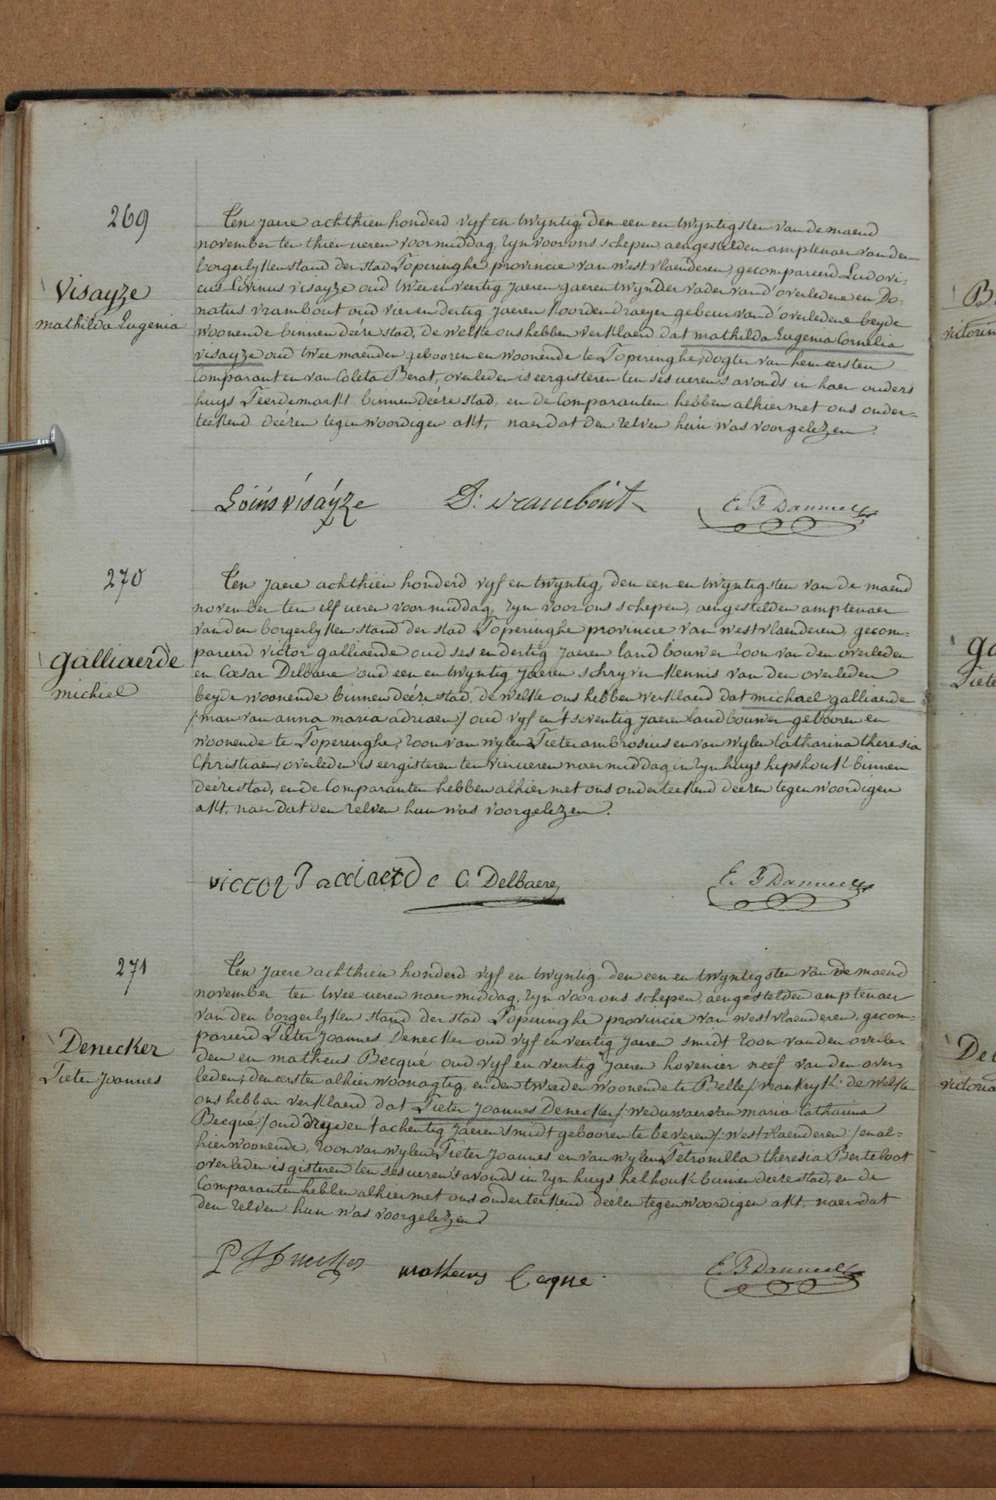 269
Visayze
mathilda Eugenia
Ten jaere achthien honderd vyf en twyntig, den een en twyntigsten van de maend
november ten thien ueren voormiddag, zyn voor ons schepen aengestelden amptenaer van den
borgerlyken stand der stad Poperinghe provincie van westvlaenderen, gecompareerd Ludovi-
cus Livinus visayze oud twee en veertig jaeren gaeren twynder vader vand' overledene en Do-
natus vrambout oud vier en dertig jaeren koordendraeyer gebeur vand' overledene beyde
woonende binnen deére stad, de welke ons hebben verklaerd dat mathilda Eugenia Cornelia
visayze oud twee maenden gebooren en woonende te Poperinghe, dogter van hem eersten
Comparant en van Coleta Berat, overleden is eergisteren ten ses ueren 's avonds in haer ouders
huys Peerdemarkt binnen deere stad, en de Comparanten hebben alhier met ons onder-
teekend deézen tegenwoordigen akt, naer dat den zelven hun was voorgelezen.
visayze D: vrambout
270
galliaerde
michiel
Ten jaere achthien honderd vyf en twyntig, den een en twyntigsten van de maend
november ten elf ueren voormiddag, zyn voor ons schepen, aengestelden amptenaer
van den borgerlyken stand der stad Poperinghe provincie van westvlaenderen, gecom-
pareerd victor galliaerde oud ses en dertig jaeren landbouwer zoon van den overleden
en Cæsar Delbaere oud een en twyntig jaeren schryver kennis van den overleden
beyde woonende binnen deére stad, de welke ons hebben verklaerd dat michael galliaerde
/:man van anna maria adriaen:/ oud vyf en 't seventig jaeren landbouwer gebooren en
woonende te Poperinghe, zoon van wylen Pieter ambrosius en van wylen Catharina theresia
Christiaen, overleden is eergisteren ten vier ueren naermiddag in zyn huys hipshoutk binnen
deére stad, en de Comparanten hebben alhier met ons onderteekend deézen tegenwoordigen
akt, naer dat den zelven hun was voorgelezen.
victor galliaerde C. Delbaere
271
Denecker
Pieter Joannes
Ten jaere achthien honderd vyf en twyntig, den een en twyntigsten van de maend
november ten twee ueren naermiddag, zyn voor ons schepen, aengestelden amptenaer
van den borgerlyken stand der stad Poperinghe provincie van westvlaenderen, gecom-
pareerd Pieter Joannes Denecker oud vyf en veertig jaeren smidt zoon van den overle-
den en matheus Becqué oud vyf en veertig jaeren hovenier neef van den over-
leden; den eersten alhier woonagtig, en den tweeden woonende te Belle /:vrankryk: de welke
ons hebben verklaerd dat Pieter Joannes Denecker /:weduwaer van maria Catharina
Becqué:/ oud drye en tachentig jaeren smidt gebooren te beveren /:westvlaenderen:/ en al-
hier woonende, zoon van wylen Pieter Joannes en van wylen Petronilla theresia Berteloot
overleden is gisteren ten ses ueren 's avonds in zyn huys helhoutk binnen deére stad, en de
Comparanten hebben alhier met ons onderteekend deézen tegenwoordigen akt, naer dat
den zelven hun was voorgelezen
matheeus becque